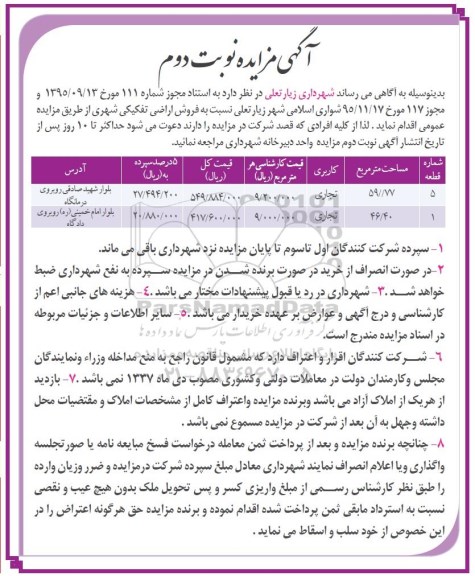 آگهی مزایده نوبت دوم
بدینوسیله به آگاهی می رساند شهرداری زیارتعلی در نظر دارد به استناد مجوز شماره ۱۱۱ مورخ ۱۳۹۵/۰۹/۱۳ و
مجوز ۱۱۷ مورخ ۹۵/۱۱/۱۷ شواری اسلامی شهر زیارتعلی نسبت به فروش اراضی تفکیکی شهری از طریق مزایده
عمومی اقدام نماید . لذا از کلیه افرادی که قصد شرکت در مزایده را دارند دعوت می شود حداکثر تا ۱۰ روز پس از
تاریخ انتشار آگهی نوبت دوم مزایده واحد دبیرخانه شهرداری مراجعه نمائید.
شماره قطعه مساحت مترمربع کاربری قیمت کارشناسی هر مترمربع (ریال) قیمت کل (ریال) ۵درصدسپرده به (ریال) آدرس
۵ ۵۹/۷۷ تجاری ۹/۲۰۰/۰۰۰ ۵۴۹/۸۸۴/۰۰۰ ۲۷/۴۹۴/۲۰۰ بلوار شهید صادقی روبروی درمانگاه
۱ ۴۶/۴۰ تجاری ۹/۰۰۰/۰۰۰ ۴۱۷/۶۰۰/۰۰۰ ۲۰/۸۸۰/۰۰۰ بلوار امام خمینی (ره) روبروی دادگاه
۱- سپرده شرکت کنندگان اول تاسوم تا پایان مزایده نزد شهرداری باقی می ماند.
۲-در صورت انصراف از خرید در صورت برنده شدن در مزایده سپرده به نفع شهرداری ضبط
خواهد شد .۳- شهرداری در رد یا قبول پیشنهادات مختار می باشد .۴- هزینه های جانبی اعم از
کارشناسی و درج آگهی و عوارض بر عهده خریدار می باشد .۵- سایر اطلاعات و جزئیات مربوطه
در اسناد مزایده مندرج است.
۶- شرکت کنندگان اقرار و اعتراف دارد که مشمول قانون راجع به منع مداخله وزراء ونمایندگان
مجلس وکارمندان دولت در معاملات دولتی وکشوری مصوب دی ماه ۱۳۳۷ نمی باشد .۷- بازدید
از هریک از املاک آزاد می باشد وبرنده مزایده واعتراف کامل از مشخصات املاک و مقتضیات محل
داشته وجهل به آن بعد از شرکت در مزایده مسموع نمی باشد .
۸- چنانچه برنده مزایده و بعد از پرداخت ثمن معامله درخواست فسخ مبایعه نامه یا صورتجلسه
واگذاری ویا اعلام انصراف نمایند شهرداری معادل مبلغ سپرده شرکت درمزایده و ضرر وزیان وارده
را طبق نظر کارشناس رسمی از مبلغ واریزی کسر و پس تحویل ملک بدون هیچ عیب و نقصی
نسبت به استرداد مابقی ثمن پرداخت شده اقدام نموده و برنده مزایده حق هرگونه اعتراض را در
این خصوص از خود سلب و اسقاط می نماید .